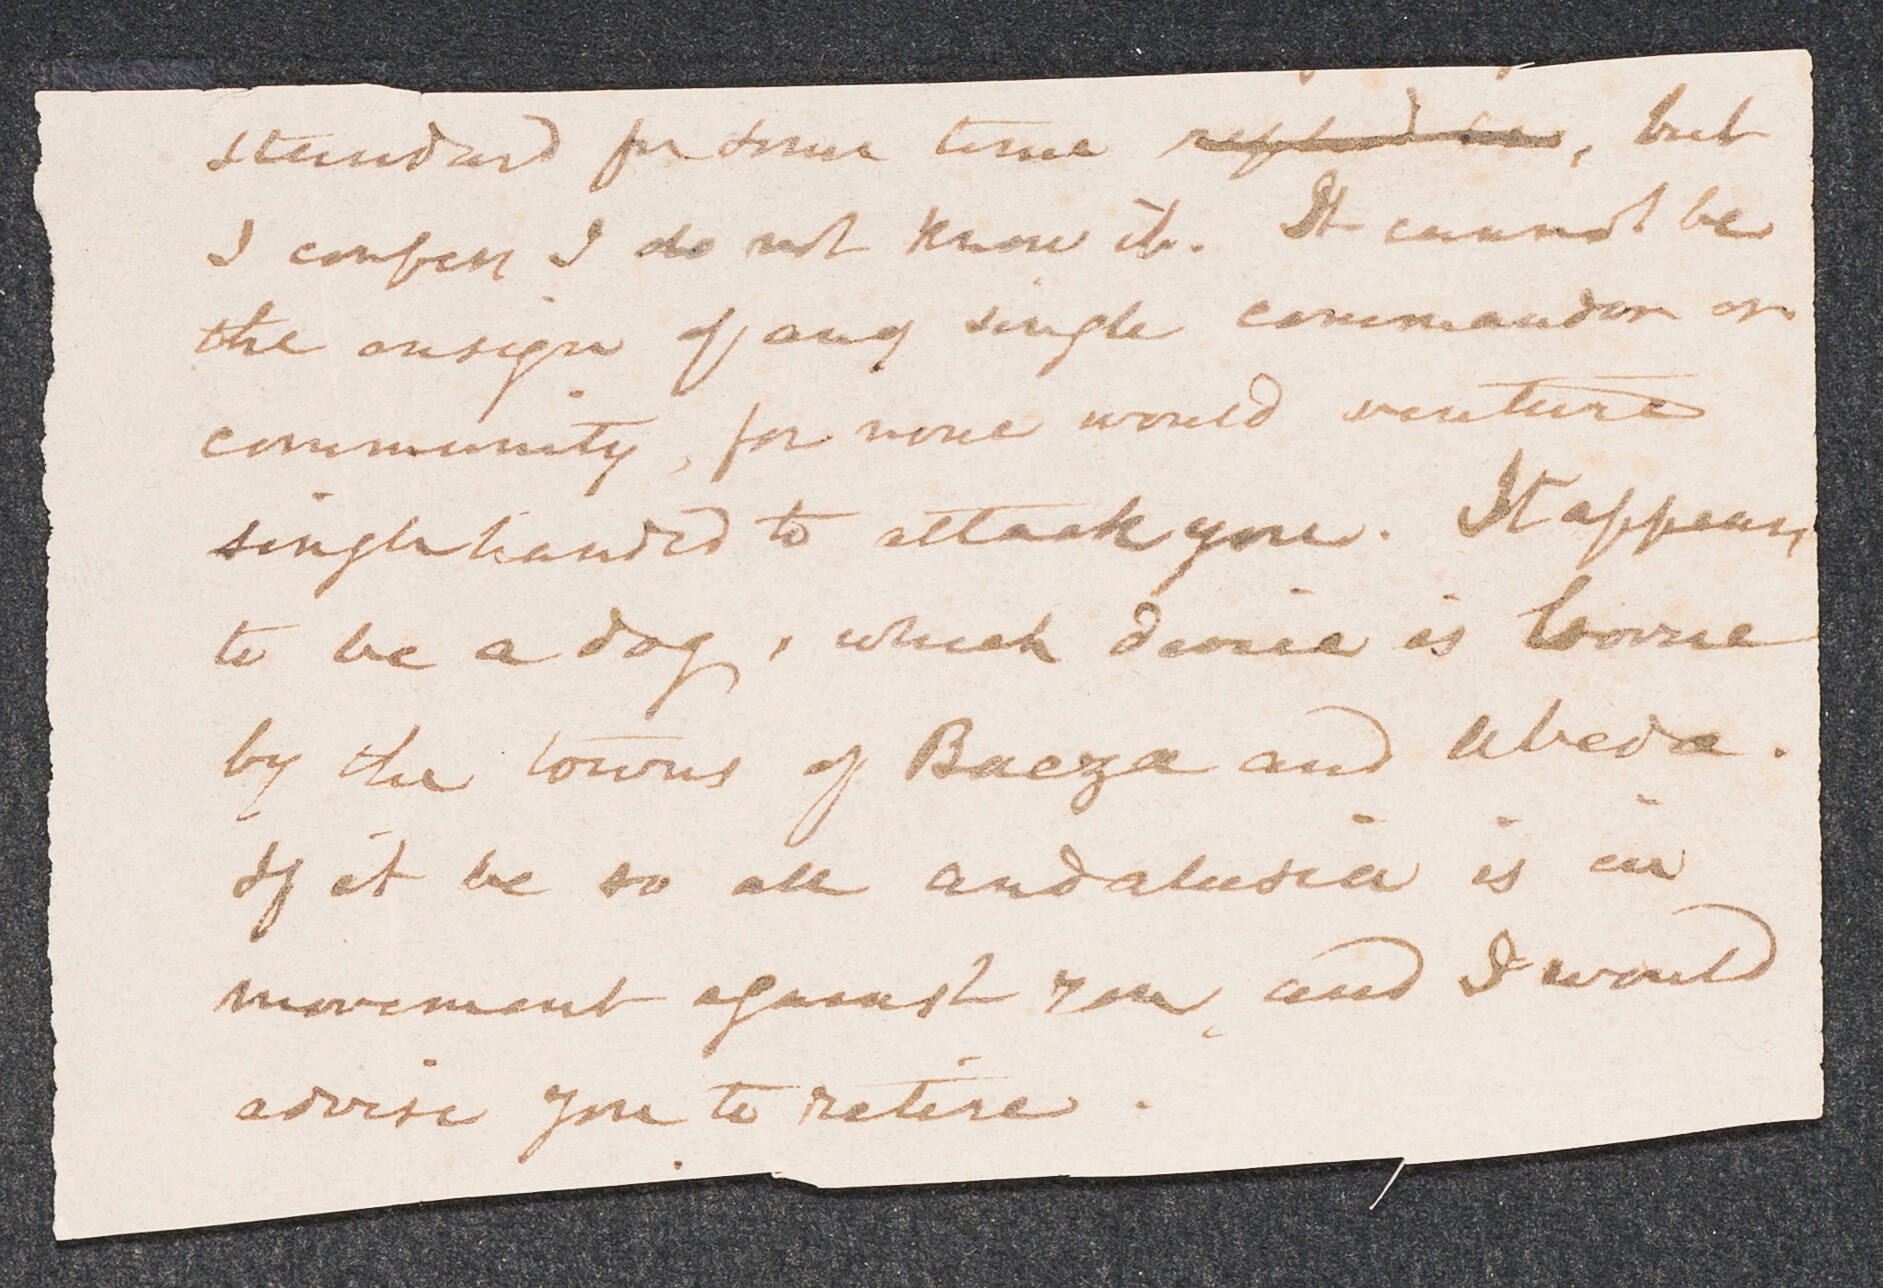 standard for some time replied he, but
I confess I do not know it. It cannot be
the ensign of any single commander or
community, for none would venture
single handed to attack you. It appears
to be a dog, which device is borne
by the towns of Baeza and Ubeda.
If it be so all andalusia is in
movement against you, and I would
advise you to retire.